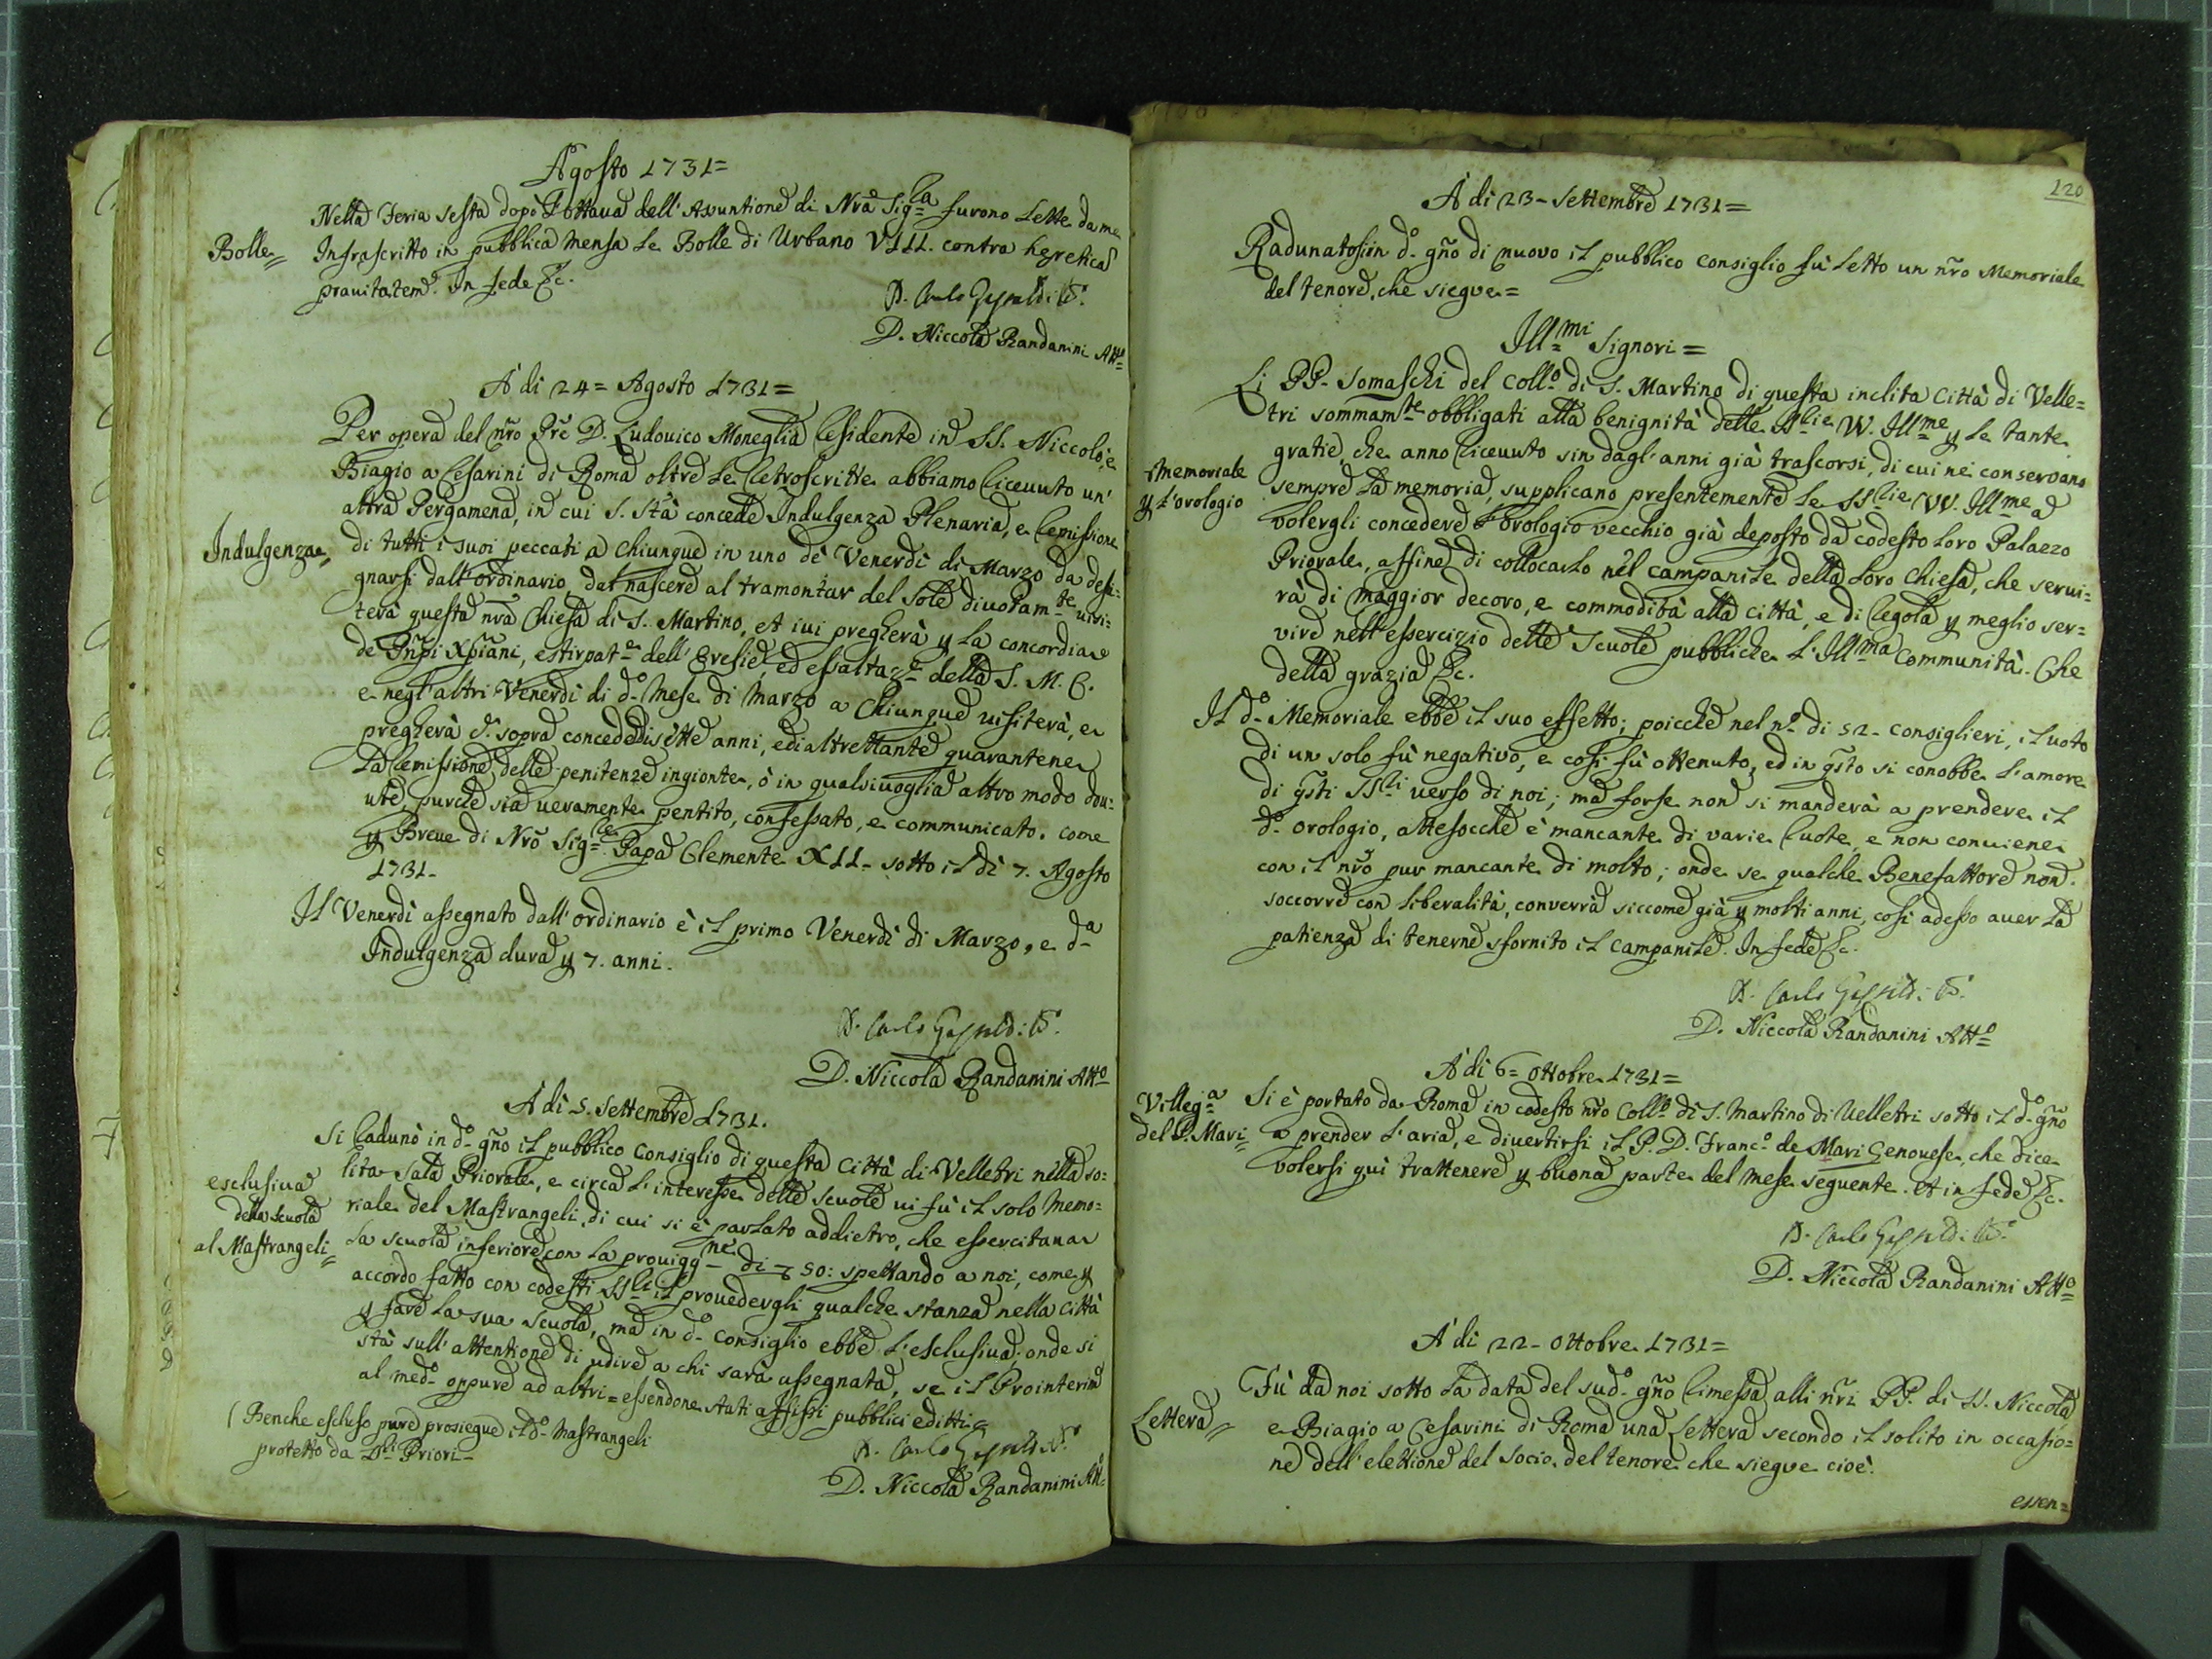 Agosto 1731=
Nella Feria sesta dopò l'ottaua dell'Assuntione di Nrã Sig.ra furono lette da me
Bolle= Infrascritto in pubblica mensa le Bolle di Urbano VIII. contra hęretica
prauitatem. In fede &c.
D. Carlo
D. Niccola Randanini Att.o
A' di 24= Agosto 1731=
Per opera del nrõ Prẽ D. Ludouico Moneglia Residente in SS. Niccolò, e
Biagio a Cesarini di Roma oltre le retroscritte abbiamo riceuuto un'
altra Pergamena, in cui S. Stà concede Indulgenza Plenaria, e remissione
Indulgenza= di tutti i suoi peccati a chiunque in uno de Venerdì di Marzo da desi=
gnarsi dall'ordinario, dal nascere al tramontar del sole diuotam.te visi=
terà questa nrã Chiesa di S. Martino, et iui pregherà p la concordia
de Prñpi Xpiãni, estirpat.e dell'Eresie, ed essaltaz.e della S. M. C.
e negl'altri Venerdì di d.o Mese di Marzo a Chiunque uisiterà, e
pregherà c.e sopra concede disette anni, ed altrettante quarantene
la remissione delle penitenze ingionte, ò in qualsiuoglia altro modo dou=
ute, purche sia ueramente pentito, confessato, e communicato. come
p Breue di Nrõ Sig.re Papa Clemente XII- sotto il dì 7. Agosto
1731-
Il Venerdì assegnato dall'ordinario è il primo Venerdì di Marzo, e d.a
Indulgenza dura p 7. anni.
D. Carlo
D. Niccola Randanini Att.o
A' di 5. Settembre 1731.
Si radunò in d.o gño il pubblico Consiglio di questa Città di Velletri nella so=
esclusiua lita sala Priorale, e circa l'interesse delle scuole ui fù il solo Memo=
della scuola riale del Mastrangeli, di cui si è parlato addietro, che essercitaua
al Mastrangeli= la scuola inferiore con la prouigg.ne di 50: spettando a noi, come p
accordo fatto con codesti SS.ri il prouedergli qualche stanza nella Città
p fare la sua scuola, ma in d.o Consiglio ebbe l'esclusiua; onde si
stà sull'attentione di udire a chi sarà assegnata, se il Prointerim
al med.o oppure ad altri= essendone stati affissi pubblici editti=
(Benche escluso pure prosiegue il d.o Mastrangeli
protetto da SS.ri Priori-
D. Carlo
D. Niccola Randanini Att.o
120
A' di 23- Settembre 1731=
Radunatosi in d.o gño di nuovo il pubblico consiglio fù letto un nrõ Memoriale
del tenore, che siegue=
Ill.mi Signori=
Li PP. Somaschi del Coll.o di S. Martino di questa inclita Città di Velle=
tri sommam.te obbligati alla benignità delle SS.rie VV. Ill.me p le tante
gratie, che anno riceuuto sin dagl'anni già trascorsi, di cui nè conservano
Memoriale sempre la memoria, supplicano presentemente le SS.rie VV. Ill.me a
p l'orologio volergli concedere l'orologio vecchio già deposto da codesto loro Palazzo
Priorale, affine di collocarlo nel campanile della loro Chiesa, che serui=
rà di maggior decoro, e commodità alla Città, e di regola p meglio ser=
vire nell'essercizio delle Scuole pubbliche l'Ill.ma Communità. Che
della grazia &c.
Il d.o Memoriale ebbe il suo effetto; poicche nel n.o di 52- consiglieri, il uoto
di un solo fù negativo, e così fù ottenuto, ed in q̃sto si conobbe l'amore
di q̃sti SS.ri uerso di noi; ma forse non si manderà a prendere il
d.o orologio, attesocche è mancante di varie ruote, e non conuiene
con il nrõ pur mancante di molto; onde se qualche Benefattore non
soccorre con liberalità, converrà siccome già p molti anni, così adesso auer la
patienza di tenerne sfornito il campanile. In fede &c.
D. Carlo
D. Niccola Randanini Att.o
A' di 6= ottobre 1731=
Villeg.a Si è portato da Roma in codesto nrõ Coll.o di S. Martino di Velletri sotto il d.o gño
del P. Mari= a prender l'aria, e diuertirsi il P. D. Franc.o de Mari Genouese, che dice
volersi quì trattenere p buona parte del mese seguente. et in fede &c.
D. Carlo
D. Niccola Randanini Att.o
A' di 22- ottobre 1731=
Fù da noi sotto la data del sud.o gño rimessa alli nrĩ PP. di SS. Niccola
Lettera= e Biagio a Cesarini di Roma una Lettera secondo il solito in occasio=
ne dell'elettione del socio del tenore che siegue cioè:
essen=